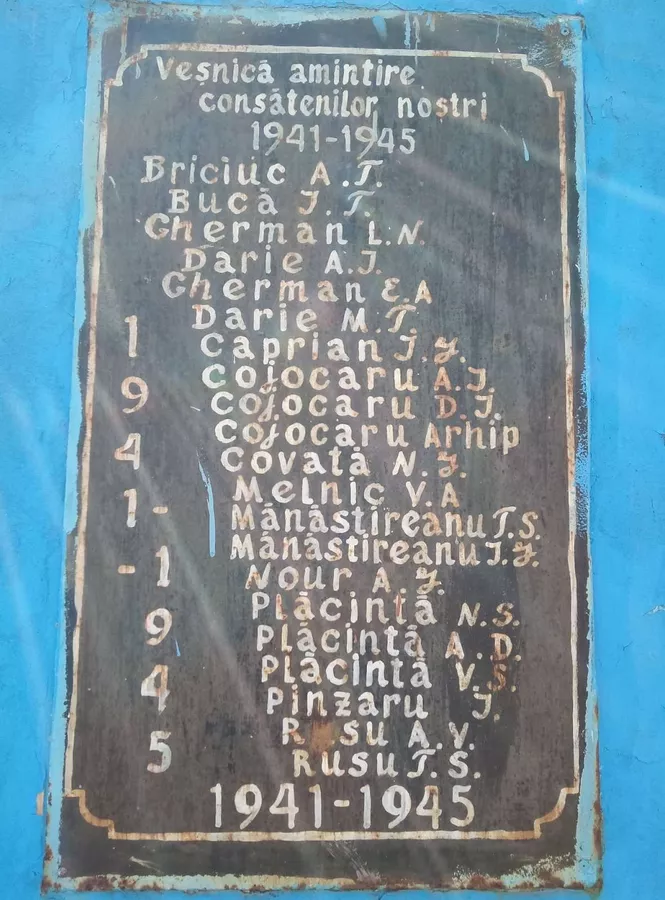 Veșnică amintire
consătenilor noștri
1941-1945
Briciuc A.T.
Bucă I.T.
Gherman L.N.
Darie A.I.
Gherman E.A
Darie M.T.
Caprian I.Y.
Cojocaru A.I.
Cojocaru D.I.
Cojocaru Arhip
Covată N.Y.
Melnic V.A
Mănăstireanu T.S.
Mănăstireanu I.Y.
Nour A.Y.
Plăcintă N.S.
Plăcintă A.D.
Plăcintă V.S.
Pinzaru I.
Rusu A.V.
Rusu T.S.
1941-1945
1941-
-1945